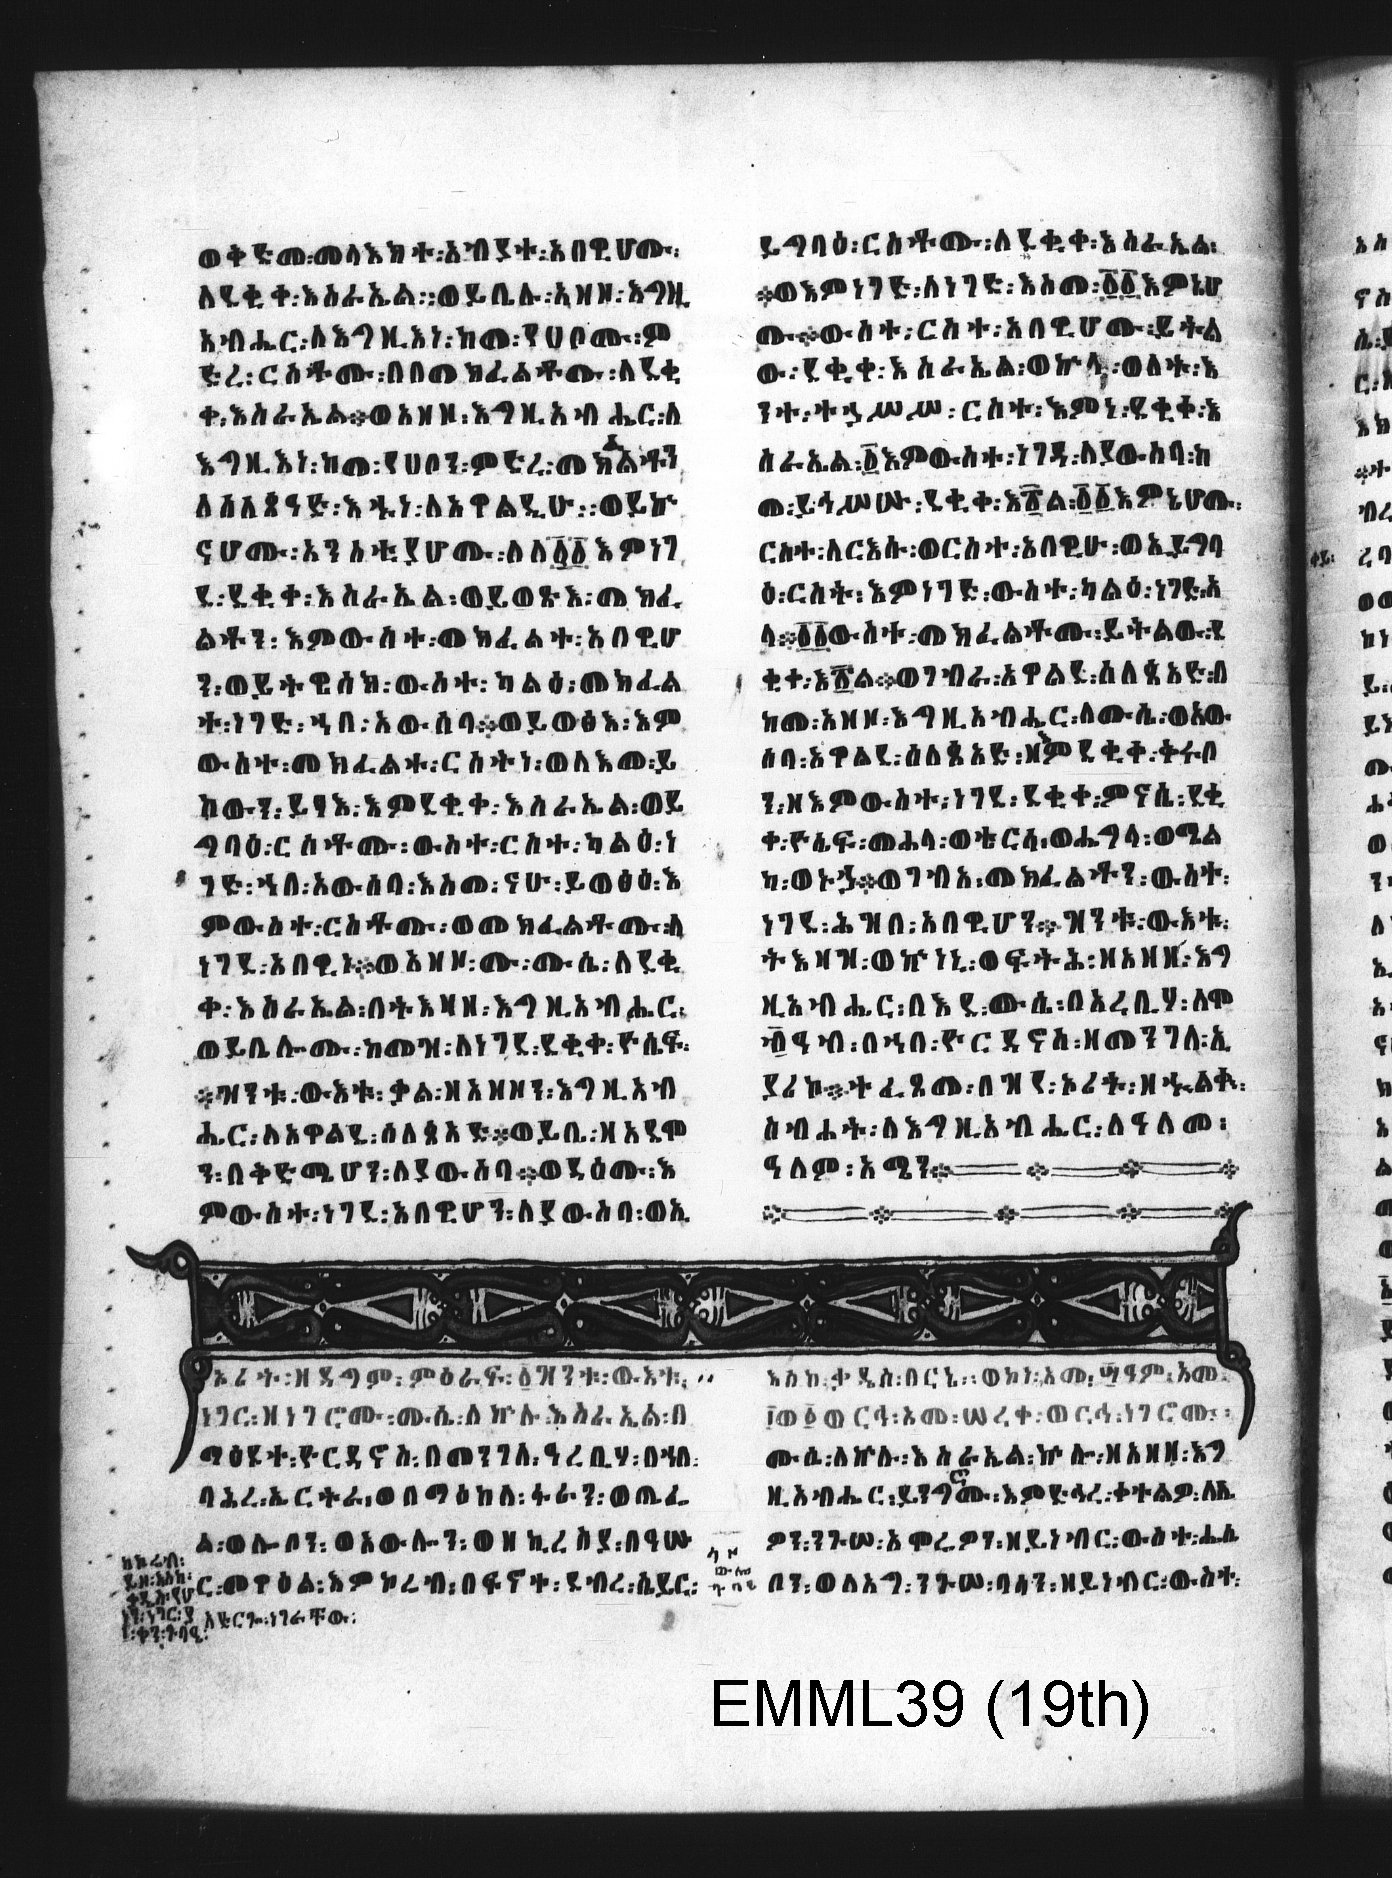 ወቅድመ፡መላእክት፡አብያተ፡አበዊሆሙ፡
ለደቂቀ፡እስራኤል፡፡ወይቤሉ፡አዘዘ፡እግዚ
አብሔር፡ለእግዚእነ፡ከመ፡የሀቦሙ፡ም
ድረ፡ርስቶሙ፡በበመክፈልቶሙ፡ለደቂ
ቀ፡እስራኤል፡፡ወአዘዘ፡እግዚአብሔር፡ለ
እግዚእነ፡ከመ፡የሀቦን፡ምድረ፡መክፈልቶን
ለሰለጰዓድ፡እኁነ፡ለአዋልዲሁ፡፡ወይኩ
ናሆሙ፡አንስቲያሆሙ፡ለለ፩፩እምነገ
ደ፡ደቂቀ፡እስራኤል፡ወይወጽእ፡መክፈ
ልቶን፡እምውስተ፡መክፈልተ፡አበዊሆ
ን፡ወይትዌስክ፡ውስተ፡ካልዕ፡መክፈል
ት፡ነገድ፡ኀበ፡አውሰባ፡፡ወይወፅእ፡እም
ውስተ፡መክፈልተ፡ርስትነ፡ወለእመ፡ይ
ከውን፡ይፃእ፡እምደቂቀ፡እስራኤል፡ወይ
ግባዕ፡ርስቶሙ፡ውስተ፡ርስተ፡ካልዕ፡ነ
ገድ፡ኀበ፡አውሰባ፡እስመ፡ናሁ፡ይወፅዕ፡እ
ምውስተ፡ርስቶሙ፡ወመክፈልቶሙ፡ለ
ነገደ፡አበዊነ፡፡ወአዘዞሙ፡ሙሴ፡ለደቂ
ቀ፡እስራኤል፡በትእዛዘ፡እግዚአብሔር፡
ወይቤሎሙ፡ከመዝ፡ለነገደ፡ደቂቀ፡ዮሴፍ፡
፡፡ዝንቱ፡ውእቱ፡ቃል፡ዘአዘዘን፡እግዚአብ
ሔር፡ለአዋልደ፡ሰለጰአድ፡፡ወይቤ፡ዘአደሞ
ን፡በቅድሜሆን፡ለያውሰባ፡፡ወዳዕሙ፡እ
ምውስተ፡ነገደ፡አበዊሆን፡ለያውስባ፡ወኢ
ይግባዕ፡ርስቶሙ፡ለደቂቀ፡እስራኤል፡
፡፡ወእምነገድ፡ለነገድ፡እስመ፡፩፩እምኒሆ
ሙ፡፡ውስተ፡ርስተ፡አበዊሆሙ፡ይትል
ው፡ደቂቀ፡እስራኤል፡ወኵላ፡ወለት፡እ
ንተ፡ትኃሥሥ፡ርስተ፡እምነ፡ደቂቀ፡እ
ስራኤል፡፩እምውስተ፡ነገዳ፡ለያውስባ፡ከ
መ፡ይኅሥሡ፡ደቂቀ፡እ፳ል፡፩፩እምኒሆሙ፡
ርስተ፡ለርእሱ፡ወርስተ፡አበዊሁ፡ወኢይግባ
ዕ፡ርስት፡እምነገድ፡ውስተ፡ካልዕ፡ነገድ፡አ
ላ፡፡፩፩ውስተ፡መክፈልቶሙ፡ይትልው፡ደ
ቂቀ፡እ፳ል፡፡ወገብራ፡አዋልደ፡ሰለጰአድ፡በ
ከመ፡አዘዘ፡እግዚአብሔር፡ለሙሴ፡ወአው
ሰባ፡አዋልደ፡ሰለጰአድ፡ዘእምደቂቀ፡ቅሩበ
ን፡ዘእምውስተ፡ነገደ፡ደቂቀ፡ምናሴ፡ደቂ
ቀ፡ዮሴፍ፡መሐላ፡ወቴርሳ፡ወሔግላ፡ወሜል
ካ፡ወኑኃ፡፡ወገብአ፡መክፈልቶን፡ውስተ፡
ነገደ፡ሕዝበ፡አበዊሆን፡፡ዝንቱ፡ውእቱ፡
ትእዛዝ፡ወኵነኔ፡ወፍትሕ፡ዘአዘዘ፡እግ
ዚአብሔር፡በእደ፡ሙሴ፡በአረቢሃ፡ለሞ
አብ፡በኀበ፡ዮርዳኖስ፡ዘመንገለ፡ኢ
ያሪኮ፡፡ተፈጸመ፡በዝየ፡ኦሪት፡ዘኁልቍ፡
ስብሐት፡ለእግዚአብሔር፡ለዓለመ፡
ዓለም፡አሜን፡፡
ኦሪት፡ዘዳግም፡ምዕራፍ፡፩ዝንቱ፡ውእቱ፡
ነገር፡ዘነገሮሙ፡ሙሴ፡ለኵሉ፡እስራኤል፡በ
ማዕዶተ፡ዮርዳኖስ፡በመንገለ፡ዓረቢሃ፡በኀበ፡
ባሕረ፡ኤርትራ፡ወበማዕከለ፡ፋራን፡ወጤፌ
ል፡ወሎቦን፡ወአውሎን፡ወዘኪረስያ፡በዓሡ
ር፡መዋዕል፡እምኮሬብ፡በፍኖተ፡ደብረ፡ሴይር፡
እስከ፡ቃዴስ፡በርኔ፡፡ወኮነ፡አመ፡፵ዓም፡አመ
፲ወ፩ወርኅ፡አመ፡ሠረቀ፡ወርኅ፡ነገሮሙ፡
ሙሴ፡ለኵሉ፡እስራኤል፡ኵሎ፡ዘአዘዘ፡እግ
ዚአብሔር፡ይንግሮሙ፡እምድኅረ፡ቀተልዎ፡ለሴ
ዎን፡ንጉሠ፡አሞሬዎን፡ዘይነብር፡ውስተ፡ሐሴ
ቦን፡ወለአግ፡ንጉሠ፡ባሳን፡ዘይነብር፡ውስተ፡